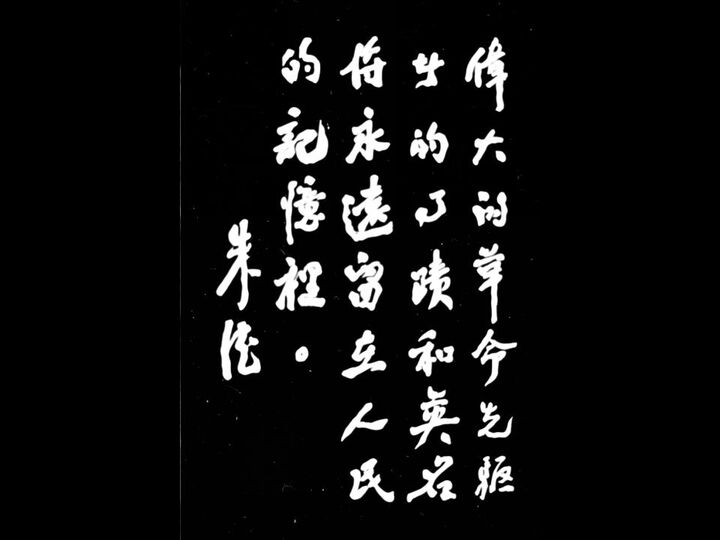 偉大的革命先驅
者的事蹟和英名
將永遠留在人民
的記憶裡。
朱德